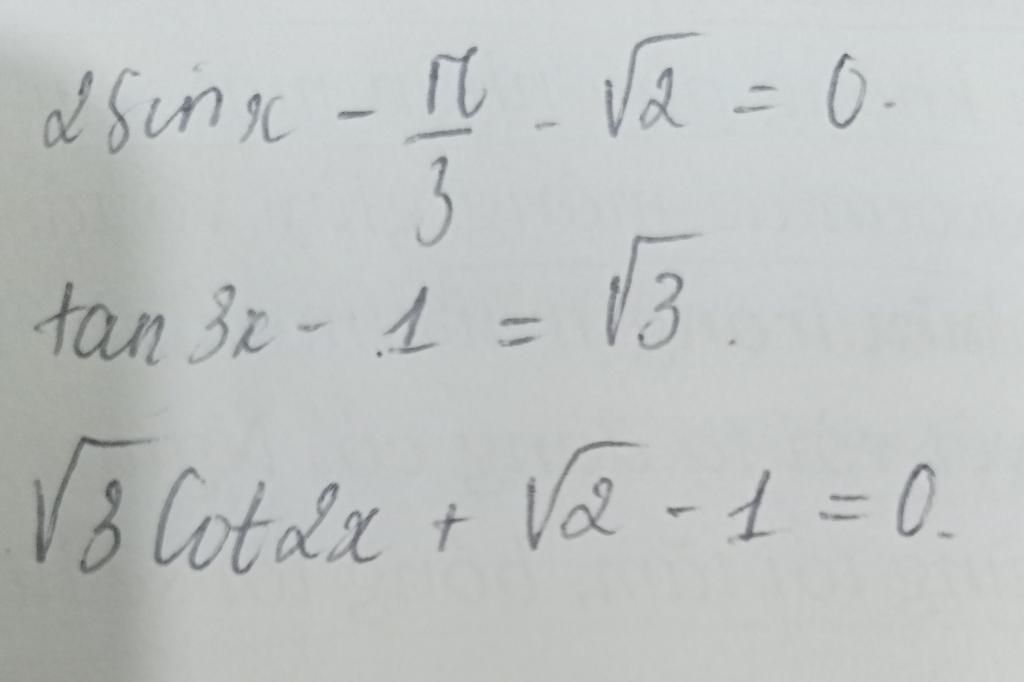 2sinx - π/3 - √2 = 0.
tan 3x - 1 = √3.
√3 Cot2x + √2 - 1 = 0.